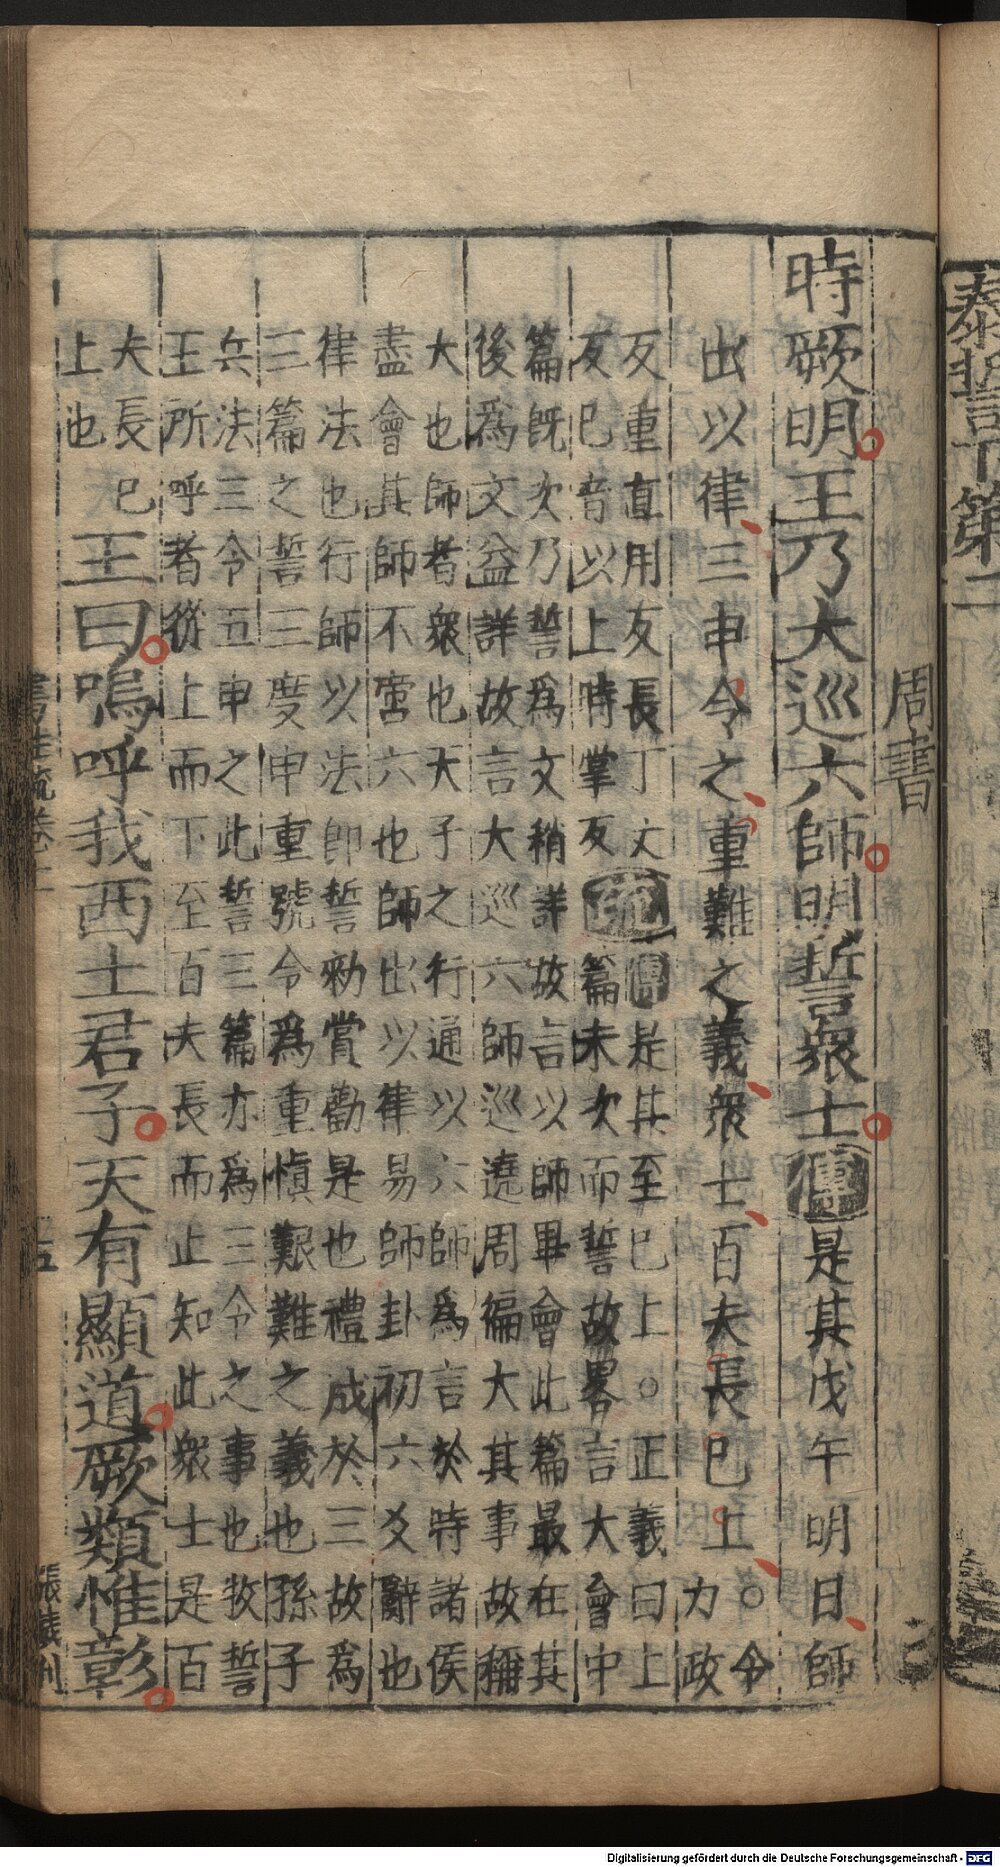 泰誓下第
周書
時厥明王乃大巡六師明誓衆士傳是其戊午明日師
出以律三申令之重難之義衆士百夫長已上○令
力政
反重直用反長丁丈傳是其至巳上○正義曰上
反巳音以上時掌反疏篇未次而誓故畧言大會中
篇既次乃誓爲文稍詳故言以師畢會此篇最在其
後爲文益詳故言大巡六師巡遶周徧大其事故稱
大也師者衆也天子之行通以六師爲言於時諸侯
盡會其師不啻六也師出以律易師卦初六爻辭也
律法也行師以法即誓勑賞勸是也禮成於三故爲
三篇之誓三度申重號令爲重慎艱難之義也孫子
兵法三令五申之此誓三篇亦爲三令之事也牧誓
王所呼者從上而下至百夫長而止知此衆士是百
夫長已
上也
王曰嗚呼我西土君子天有顯道厥類惟彰
書註疏卷十
五
Digitalisierung gefördert durch die Deutsche Forschungsgemeinschaft - DFG